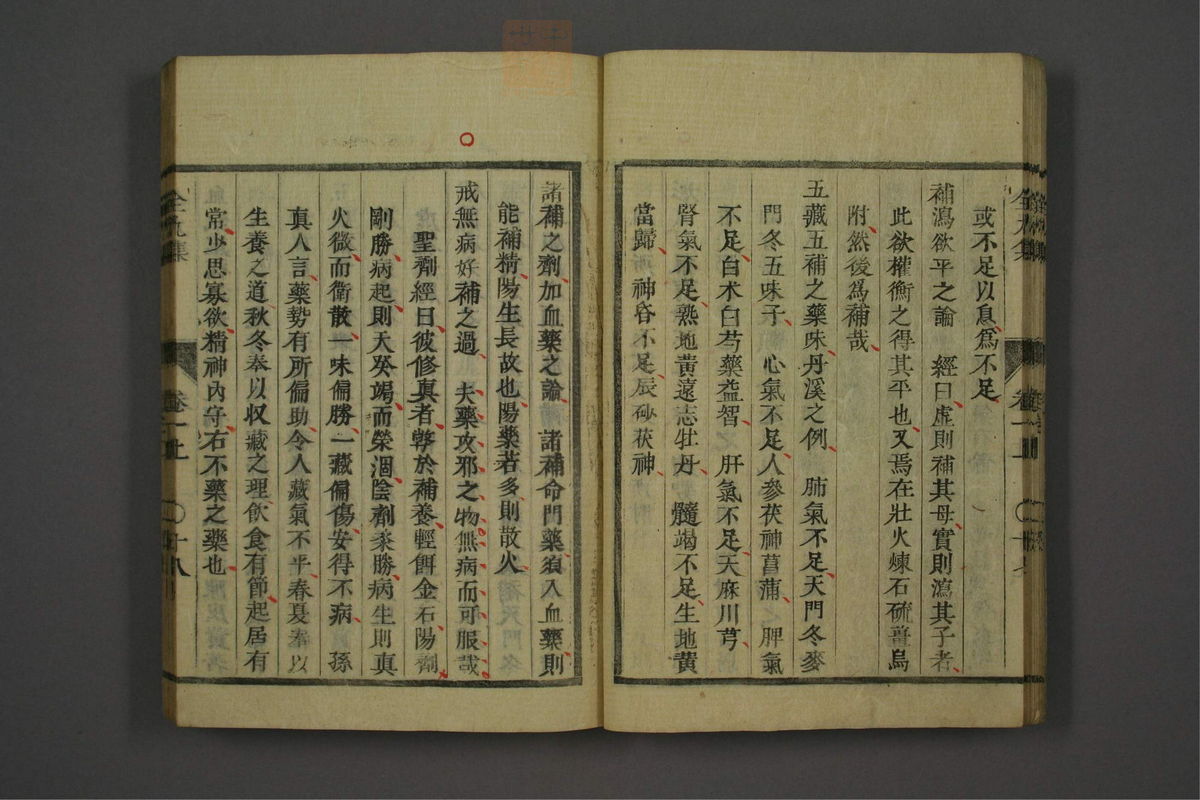 或不足以息爲不足
補瀉欲平之論　經曰虛則補其母實則瀉其子者
此欲權衡之得其平也又焉在壯火煉石硫薑烏
附然後爲補哉
五藏五補之藥味丹溪之例　肺氣不足天門冬麥
門冬五味子　心氣不足人參茯神菖蒲　脾氣
不足白朮白芍藥益智　肝氣不足天麻川芎
腎氣不足熟地黃遠志牡丹　髓竭不足生地黃
當歸　神昏不足辰砂茯神
諸補之劑加血藥之論　諸補命門藥須入血藥則
能補精陽生長故也陽藥若多則散火
戒無病好補之過　夫藥攻邪之物無病而可服哉
聖劑經曰彼修真者弊於補養輕餌金石陽劑
剛勝病起則天癸竭而榮涸陰劑柔勝病生則真
火微而衛散一味偏勝一藏偏傷安得不病　孫
真人言藥勢有所偏助令人藏氣不平春夏奉以
生養之道秋冬奉以収藏之理飲食有節起居有
常少思寡欲精神內守右不藥之藥也
全九集
卷一上
十八